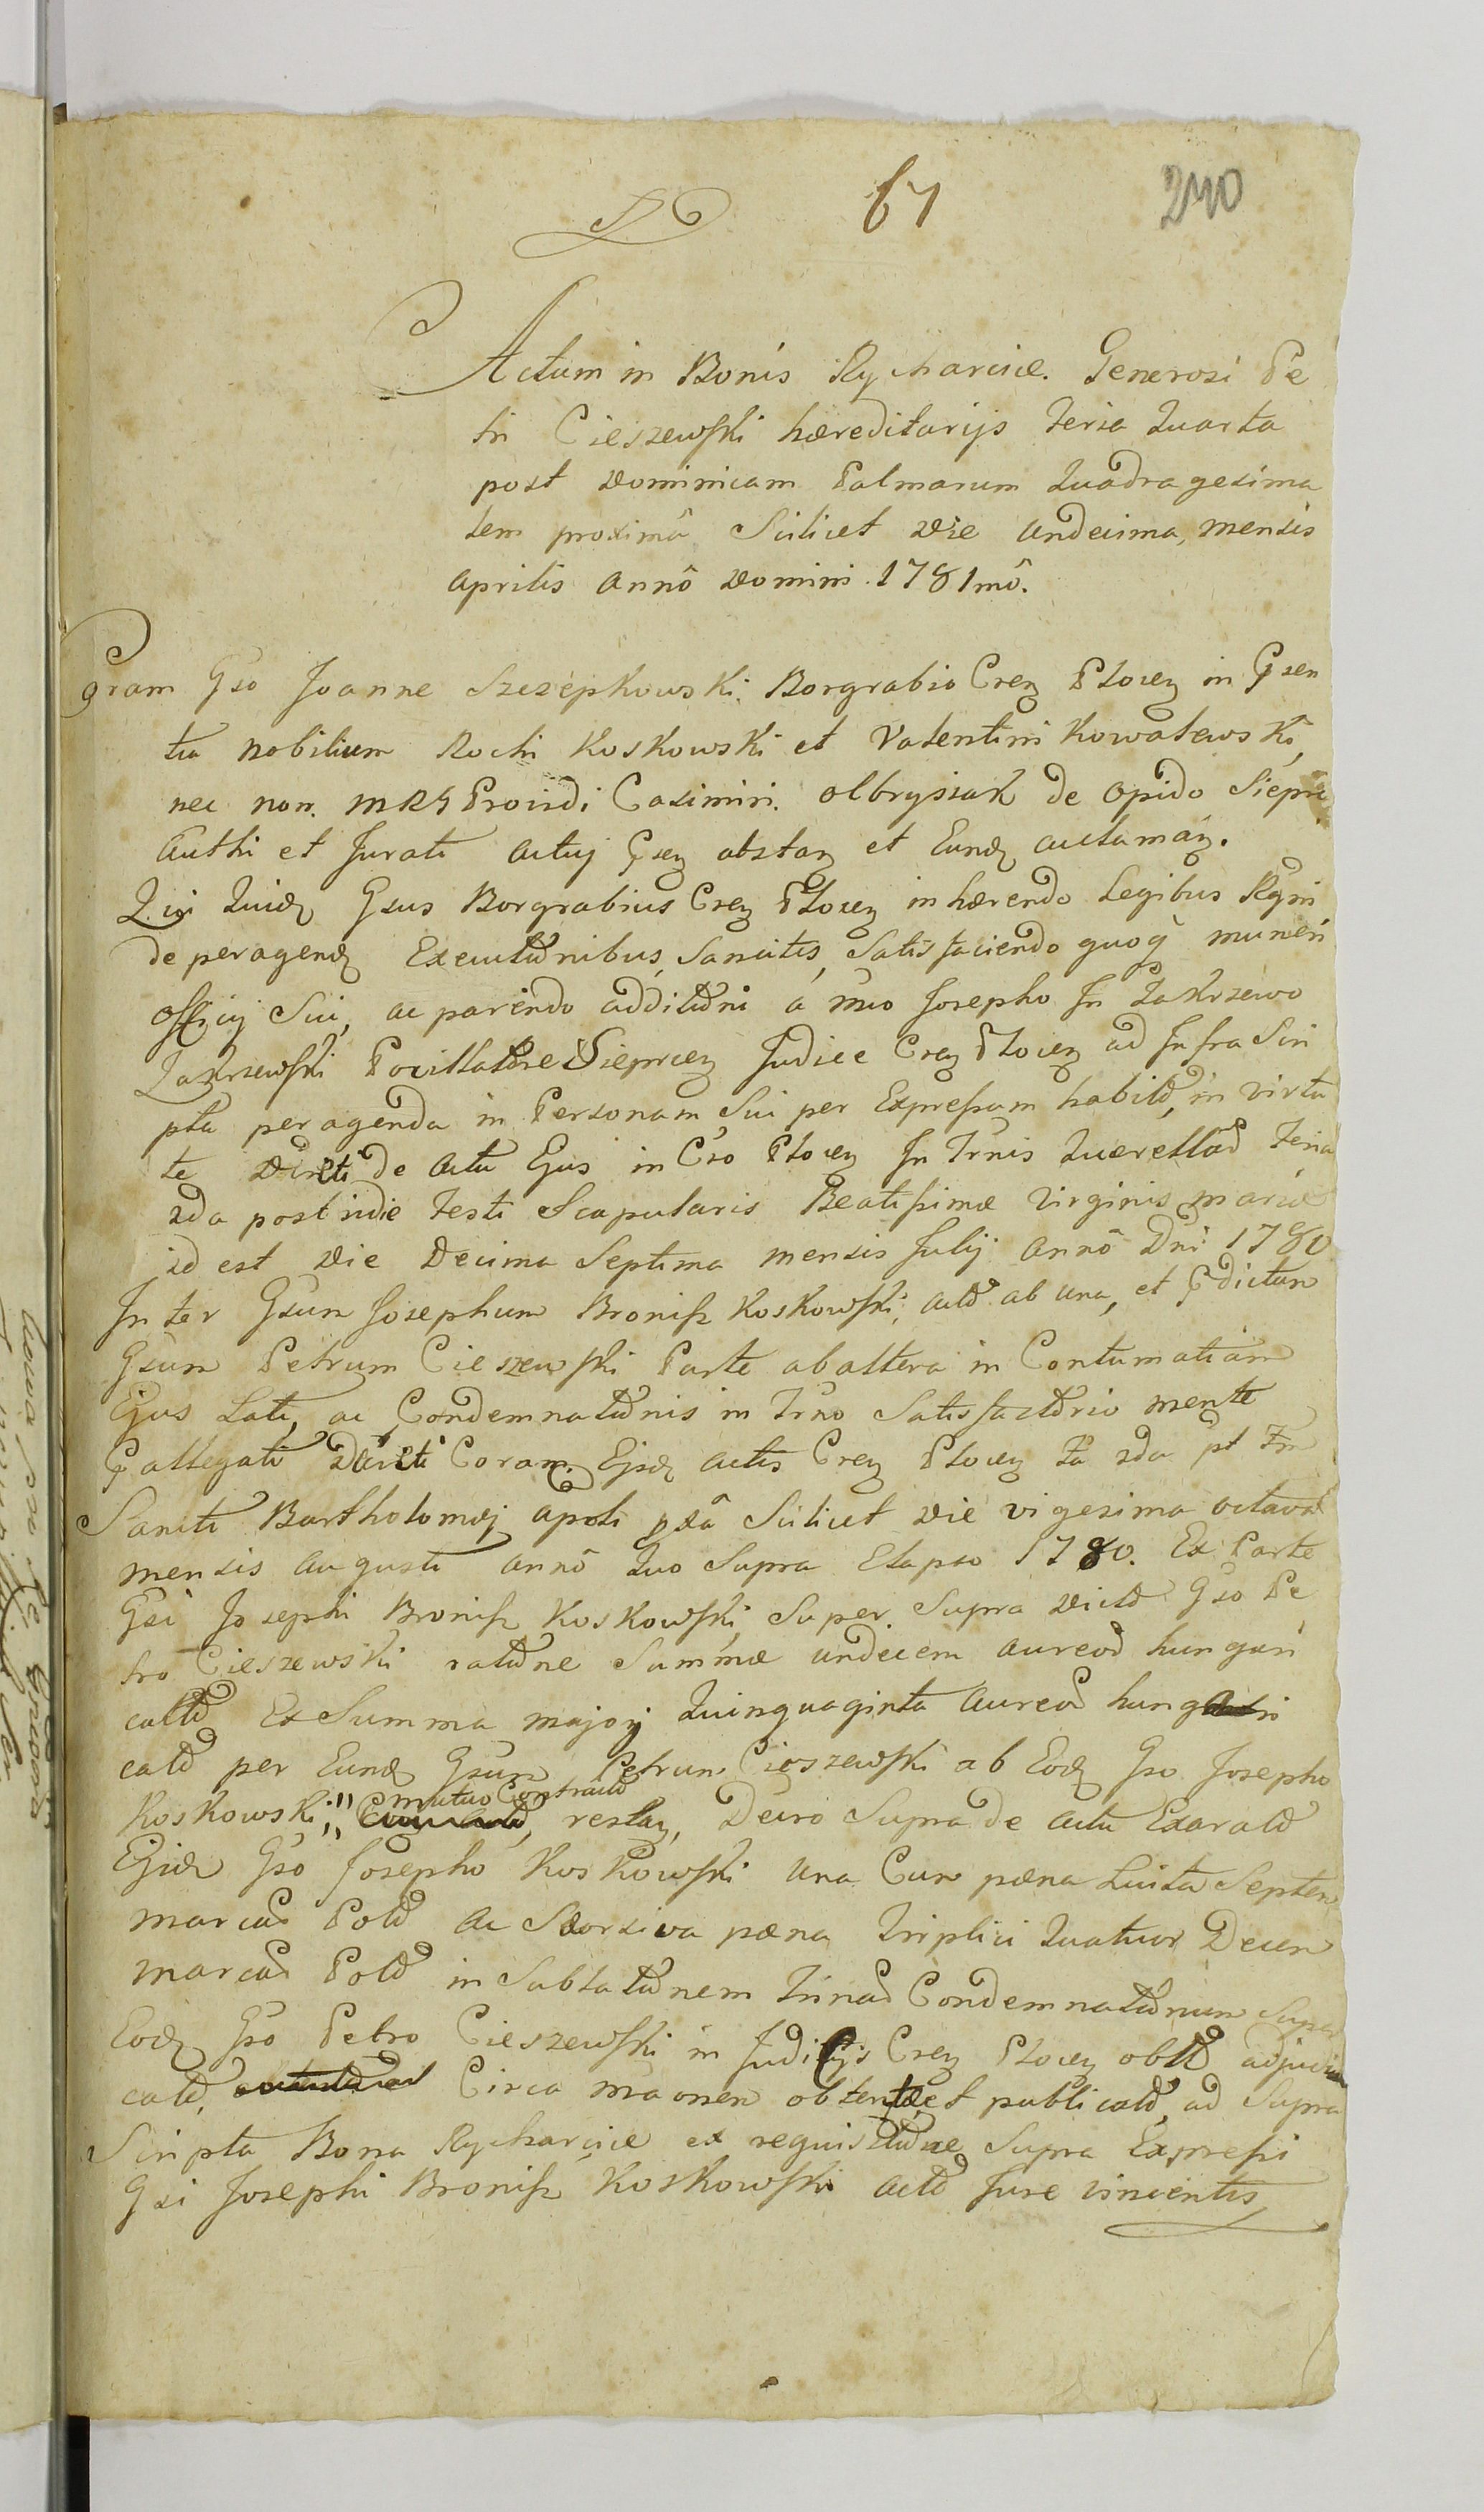 67 240
Actum in Bonis Rycharcice. Generosi Pe
tri Cieszewski hæreditarijs Feria Quarta
post Dominicam Palmarum Quadragesima
lem proximâ Scilicet Die undecima, mensis
Aprilis Annô Domini 1781mô.
Coram Gso Joanne Szczepkowski Borgrabio Cren Plocen in Psen
tia Nobilium Rochi Koskowski et Valentini Kowalewski,
nec non. MRS Providi Casimiri. Olbrysiak de Opido Siepric
Authi et Jurati actuj Psen abstan et Eund acclaman.
Qui Quid Gsus Borgrabius Cren Plocen inhærendo Legibus Regni
de peragend Executōnibus, Sancitis, Satisfaciendo quoq muneri
Officij Sui, ac parendo additōni a mco Josepho In Zakrzewo
Zakrzewski Pocillatore Sieprcen Judice Cren Plocen ad Infra Scri
pta peragenda in Personam Sui per Expressam habitō, in virtu
te Dicti de actu Ejus in Cro Plocen In Trnis Querellar Feria
2da postridie Festi Scapularis Beatissimæ Virginis Mariæ
id est Die Decima Septima mensis Julij Annô Dni 1780
Inter Gsum Josephum Bronisz Koskowski, actō ab una, et Pdictum
Gsum Petrum Cieszewski Parte ab altera in Contumatiam
Ejus Lati, ac Condemnatōnis in Trno Satisfactōrio mente
Pallegati Dicti Coram Ejsd actis Cren Plocen Fa 2da pt Fm
Sancti Bartholomej Apoli pxâ Scilicet Die vigesima octava
mensis Augusti annô Quo Supra Elapso 1780. Ex Parte
Gsi Josephi Bronisz Koskowski, Super Supra Dictō Gso Pe
tro Cieszewski ratōne Summæ undecem aureor hungari
caliū Ex Summa majorj Quinquaginta Aureor hungari
caliū per Eund Gsum Petrum Cieszewski ab Eod Gso Josepho
Koskowski, " mutuo Contractō restan, Dcro Supra de actu Exaratō
Ejsd Gso Josepho Koskowski una Cum pæna Luita Septem
marcar Polō ac Seorsiva pæna Triplici Quatuor Decem
marcar Polō in Sublatōnem Trinar Condemnatōnum Super
Eod Gso Petro Cieszewski in Judicijs Cren Plocen obtō adjudi
catō, Circa mçonem obtentæ et publicatō, ad Supra
Scripta Bona Rycharcice ex requisitōne Supra Expressi
Gsi Josephi Bronisz Koskowski actō Jure vincentis